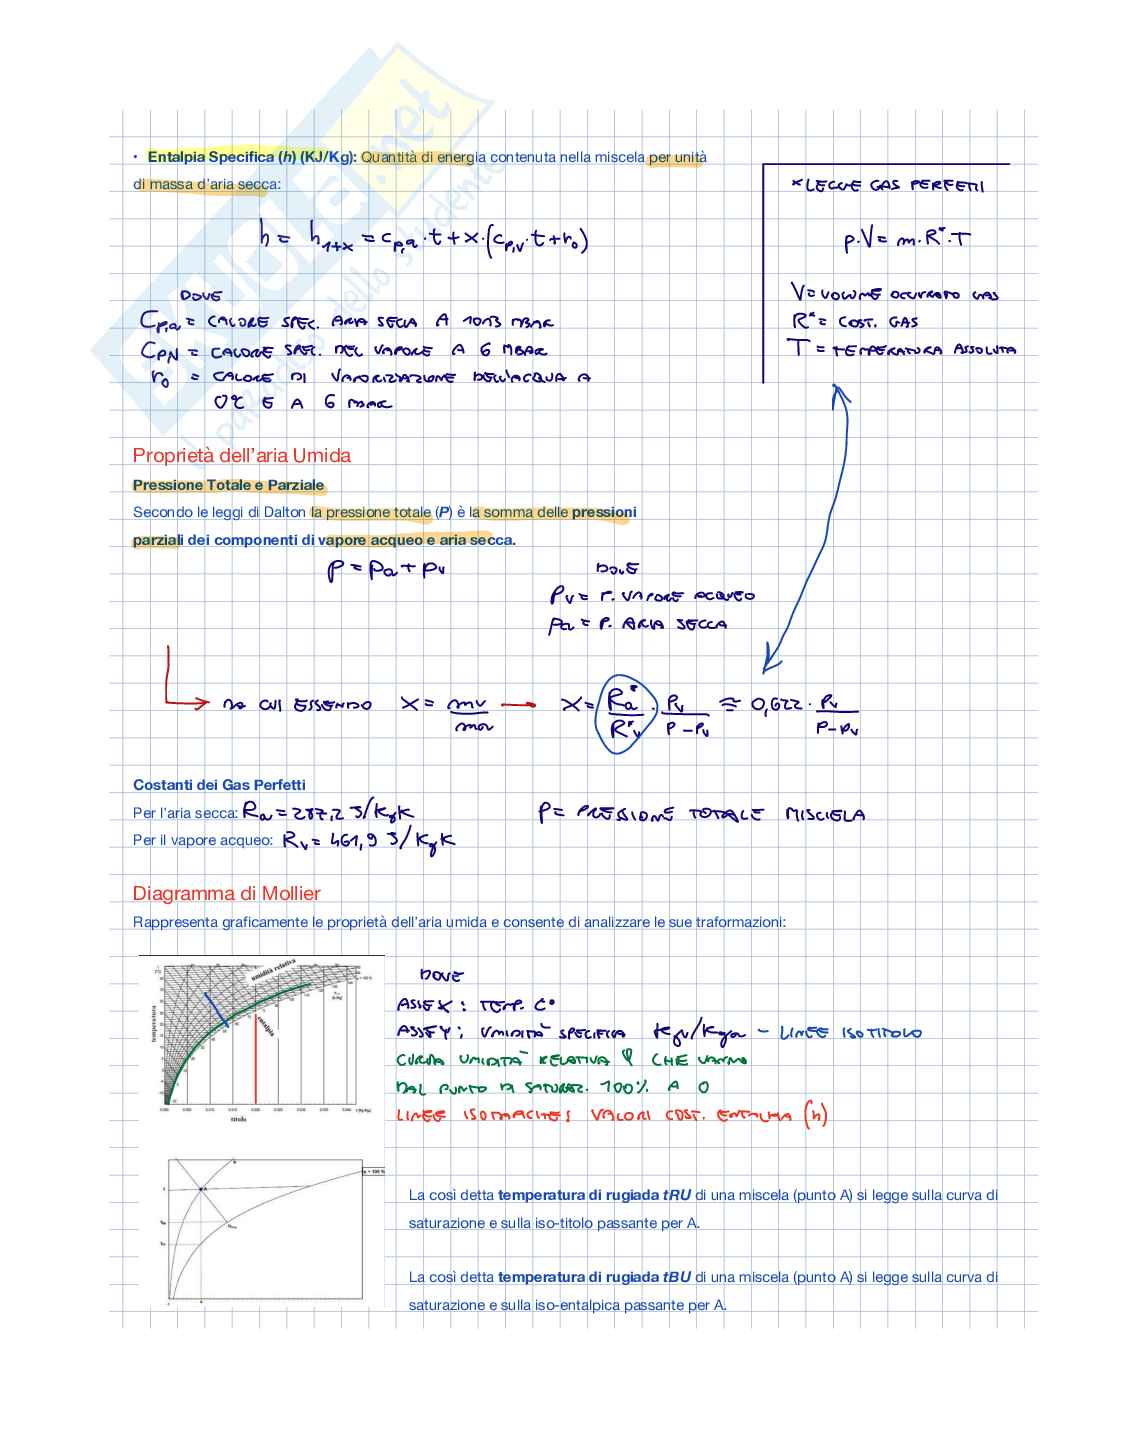 • Entalpia Specifica (h) (KJ/Kg): Quantità di energia contenuta nella miscela per unità
di massa d'aria secca:
h = h1+x = cp,a · t + x · (cp,v · t + r0)
DOVE
Cp,a = CALORE SPEC. ARIA SECCA A 1013 MBAR
CPN = CALORE SPEC. DEL VAPORE A 6 MBAR
r0 = CALORE DI VAPORIZZAZIONE DELL'ACQUA A
0°C E A 6 MBAR
* LEGGE GAS PERFETTI
p·V = m·R*·T
V = VOLUME OCCUPATO GAS
R* = COST. GAS
T = TEMPERATURA ASSOLUTA
Proprietà dell'aria Umida
Pressione Totale e Parziale
Secondo le leggi di Dalton la pressione totale (P) è la somma delle pressioni
parziali dei componenti di vapore acqueo e aria secca.
P = Pa + Pv
DOVE
Pv = P. VAPORE ACQUEO
Pa = P. ARIA SECCA
DA CUI ESSENDO X = mv/ma → X = Ra*/R*v · Pv/P-Pv ≅ 0,622 · Pv/P-Pv
Costanti dei Gas Perfetti
Per l'aria secca: Ra = 287,2 J/KgK
P = PRESSIONE TOTALE MISCIELA
Per il vapore acqueo: Rv = 461,9 J/KgK
Diagramma di Mollier
Rappresenta graficamente le proprietà dell'aria umida e consente di analizzare le sue traformazioni:
umidità relativa
temperatura
entalpia
titolo
DOVE
ASSE X : TEMP. C°
ASSE Y : UMIDITÀ SPECIFICA Kgv/Kga - LINEE ISOTITOLO
CURVA UMIDITÀ RELATIVA φ CHE VANNO
DAL PUNTO DI SATURAZ. 100% A 0
LINEE ISOENTALPICHE: VALORI COST. ENTALPIA (h)
φ = 100 %
A
La così detta temperatura di rugiada tRU di una miscela (punto A) si legge sulla curva di
saturazione e sulla iso-titolo passante per A.
La così detta temperatura di rugiada tBU di una miscela (punto A) si legge sulla curva di
saturazione e sulla iso-entalpica passante per A.